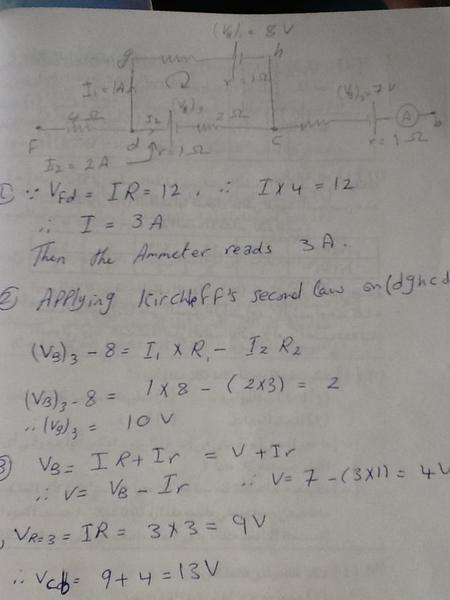 (VB)1 = 8 V
g
h
r = 1 Ω
I1 = 1A
(VB)3
(VB)2 = 7 V
4 Ω
I2
2 Ω
A
b
F
d
r = 1 Ω
C
r = 1 Ω
I2 = 2 A
① ∵ VFd = IR = 12 . ∴ I × 4 = 12
∴ I = 3 A
Then the Ammeter reads 3 A.
② Applying Kirchoff's second law on (dghcd
(VB)3 - 8 = I1 × R1 - I2 R2
(VB)3 - 8 = 1 × 8 - (2×3) = 2
∴ (VB)3 = 10 V
3 VB = I R + Ir = V + Ir
∴ V = VB - Ir ∴ V = 7 - (3×1) = 4V
, VR=3 = IR = 3 × 3 = 9V
∴ Vcb = 9 + 4 = 13V